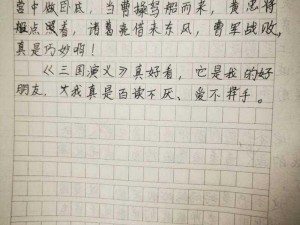 营中做卧底，当曹操驾船而来，黄忠将
船点燃着，诸葛亮借来东风，曹军战败，
真是巧妙啊！
《三国演义》真好看，它是我的好
朋友，我真是百读不厌、爱不释手。